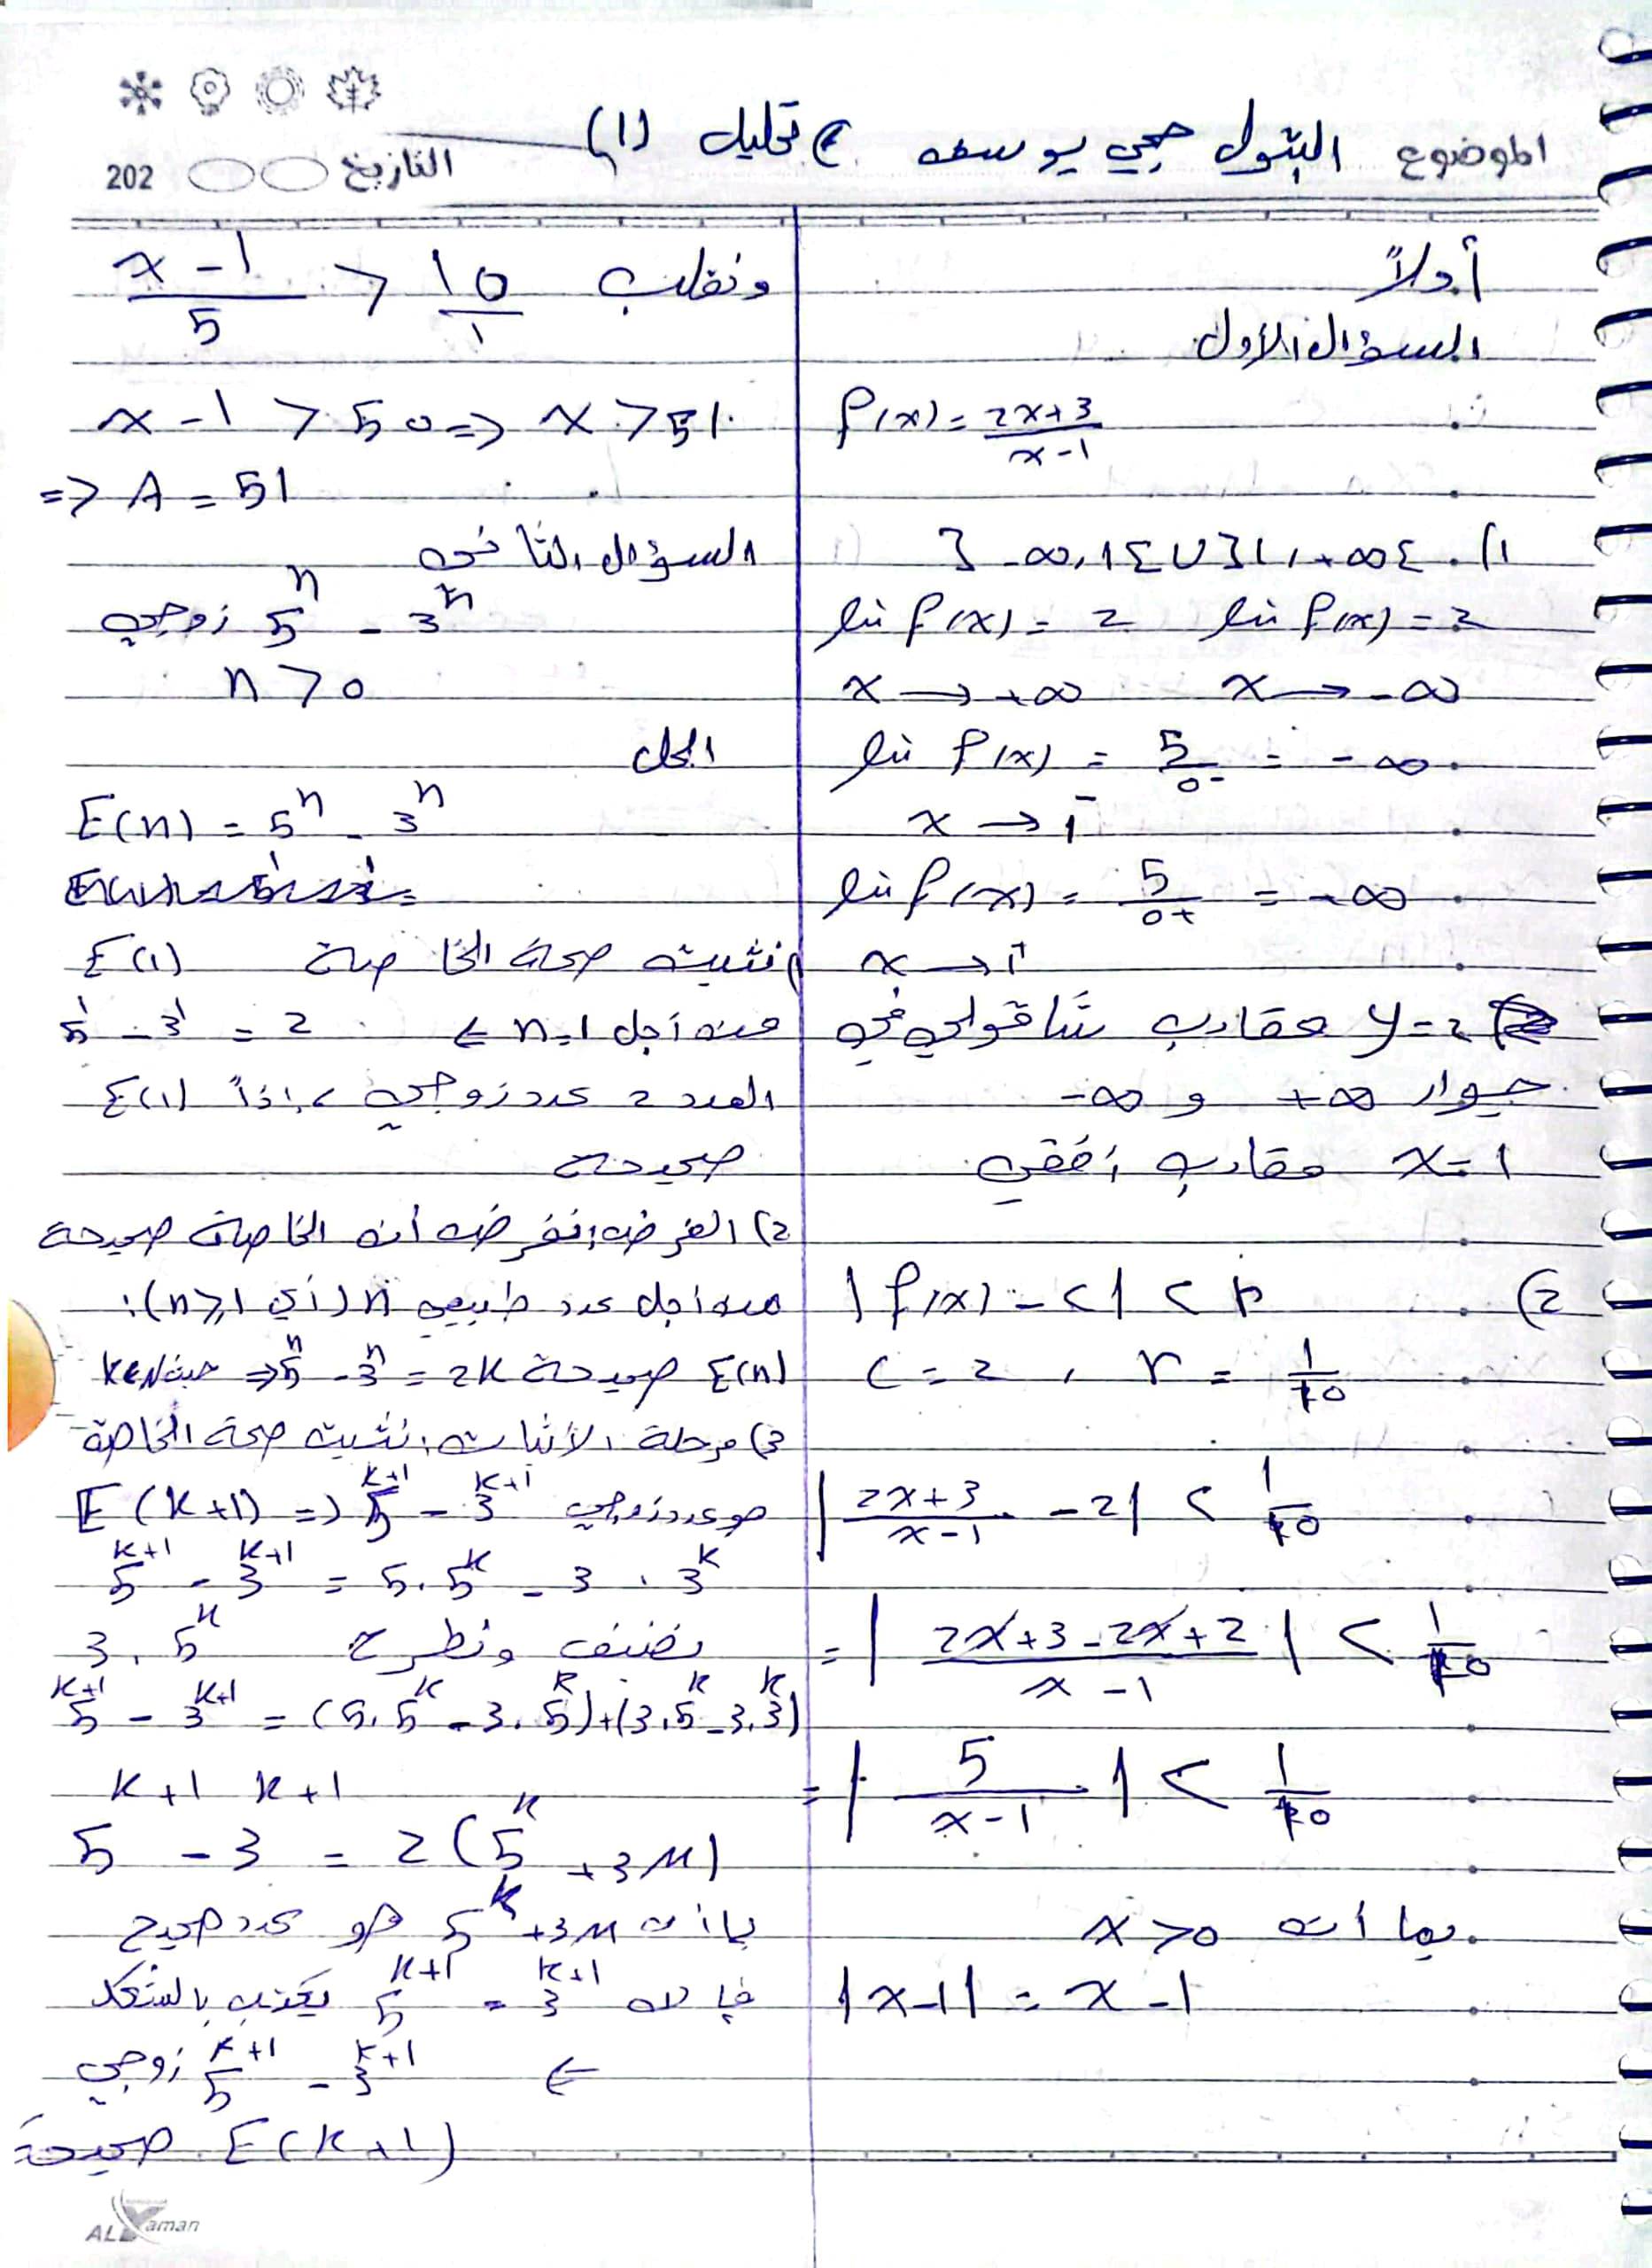 الموضوع البتول حجي يوسف تحليل (1)
التاريخ 202
أولاً
السؤال الأول
f(x) = \frac{2x+3}{x-1}
1) ]-∞,1[ U ]1,+∞[
lim f(x) = 2 lim f(x) = 2
x → +∞ x → -∞
lim f(x) = \frac{5}{0-} = -∞
x → 1⁻
lim f(x) = \frac{5}{0+} = +∞
x → 1⁺
y=2 مقارب شاقولي في
جوار +∞ و -∞
x=1 مقارب أفقي
2) |f(x) - c| < r
c = 2 , r = \frac{1}{10}
|\frac{2x+3}{x-1} - 2| < \frac{1}{10}
= |\frac{2x+3-2x+2}{x-1}| < \frac{1}{10}
= |\frac{5}{x-1}| < \frac{1}{10}
بما أن x>0
|x-1| = x-1
ونقلب \frac{x-1}{5} > \frac{10}{1}
x-1 > 50 => x > 51
=> A = 51
السؤال الثاني
5ⁿ - 3ⁿ زوجي
n > 0
الحل
E(n) = 5ⁿ - 3ⁿ
1) نثبت صحة الخاصة E(1)
من أجل n=1 ⇐ 5¹ - 3¹ = 2
العدد 2 عدد زوجي، إذاً E(1)
صحيحة
2) الفرض: نفرض أن الخاصة صحيحة
من أجل عدد طبيعي n (أي n≥1):
E(n) صحيحة 5ⁿ - 3ⁿ = 2k => حيث k∈N
3) مرحلة الإثبات: نثبت صحة الخاصة
E(k+1) => 5^{k+1} - 3^{k+1} هو عدد زوجي
5^{k+1} - 3^{k+1} = 5.5^k - 3.3^k
نضيف ونطرح 3.5^k
5^{k+1} - 3^{k+1} = (5.5^k - 3.5^k)+(3.5^k - 3.3^k)
k+1 k+1
5 - 3 = 2(5^k + 3M)
بما أن 5^k + 3M هو عدد صحيح
فإن 5^{k+1} - 3^{k+1} يكتب بالشكل
⇐ 5^{k+1} - 3^{k+1} زوجي
E(k+1) صحيحة
ALYaman